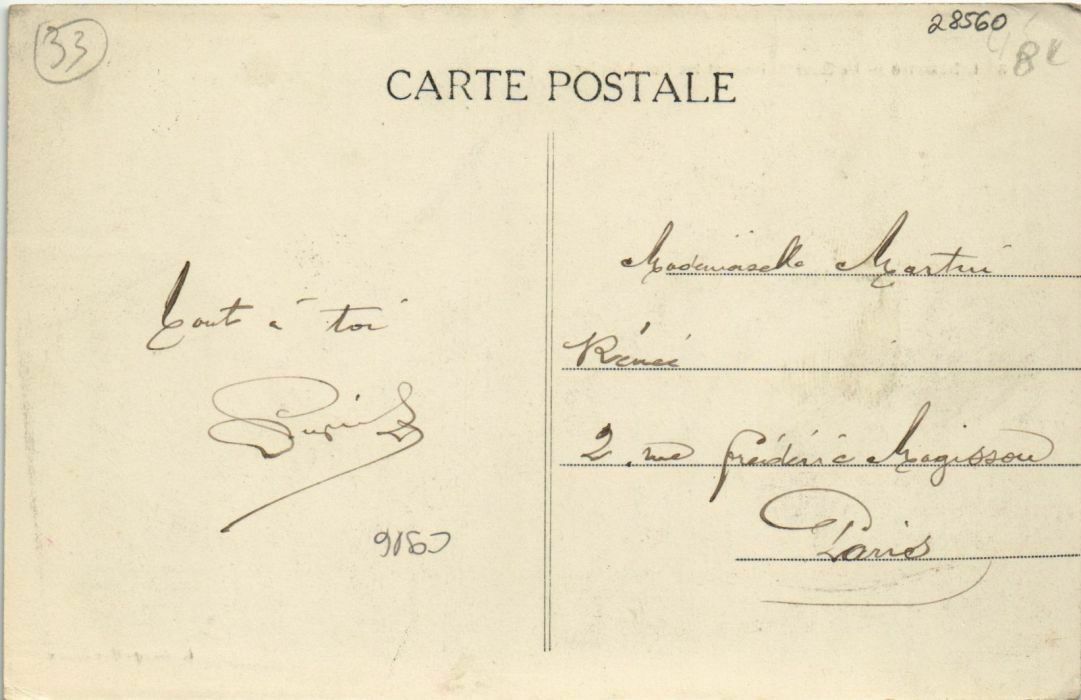 33
28560
8€
CARTE POSTALE
Mademoiselle Martin
Renée
2, rue frédéric Magisson
Paris
Tout à toi